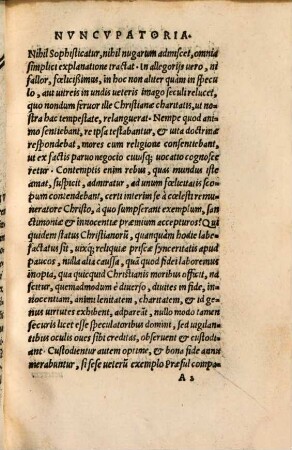 NVNCVPATORIA.
Nihil Sophisticatur, nihil nugarum admiscet, omnia
simplici explanatione tractat. In allegorijs uero, ni
fallor, fœlicißimus, in hoc non aliter quàm in specu
lo, aut uitreis in undis ueteris imago seculi relucet,
quo nondum feruor ille Christianæ charitatis, ut no
stra hac tempestate, relanguerat. Nempe quod animo
sentiebant, re ipsa testabantur, & uita doctrinæ
respondebat, mores cum religione consentiebant,
ut ex factis paruo negocio cuiusq; uocatio cognosce
retur. Contemptis enim rebus, quas mundus iste
amat, suspicit, admiratur, ad unum fœlicitatis sco
pum contendebant, certi interim se à cœlesti remu
neratore Christo, à quo sumpserant exemplum, san
ctimoniæ & innocentiæ præmium accepturos? Qui
quidem status Christianorũ, quanquàm hodie labe
factatus sit, uixq; reliquiæ priscæ synceritatis apud
paucos, nulla alia caussa, quàm quod fidei laboremus
inopia, qua quicquid Christianis moribus officit, na
scitur, quemadmodum è diuerso, diuites in fide, in
nocentiam, animi lenitatem, charitatem, & id ge
nus uirtutes exhibent, adpareãt, nullo modo tamen
securis licet esse speculatoribus domini, sed uigilan
tibus oculis oues sibi creditas, obseruent & custodi
ant. Custodientur autem optime, & bona fide annu
merabuntur, si sese ueterũ exemplo Præsul compa-
A 3